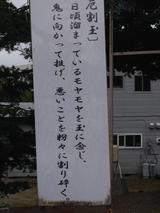 厄割玉〕
日頃溜まっているモヤモヤを玉に念じ、
鬼に向かって投げ、悪いことを粉々に割り砕く。